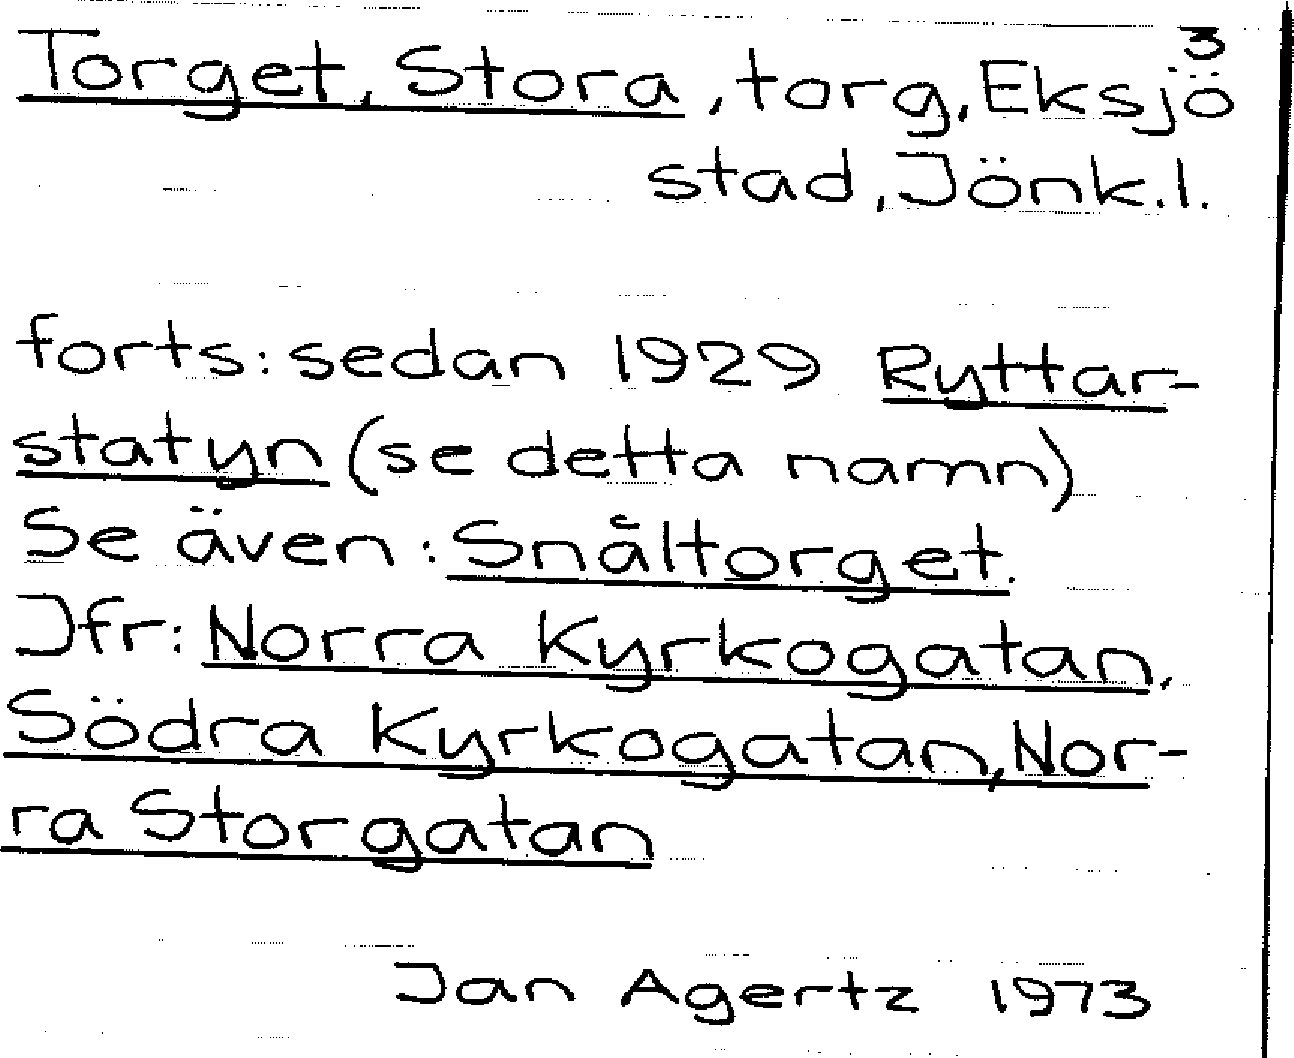 3
Torget, Stora, torg, Eksjö
stad, Jönk.l.
forts: sedan 1929 Ryttar-
statyn (se detta namn)
Se även: Snåltorget.
Jfr: Norra Kyrkogatan,
Södra Kyrkogatan, Nor-
ra Storgatan
Jan Agertz 1973